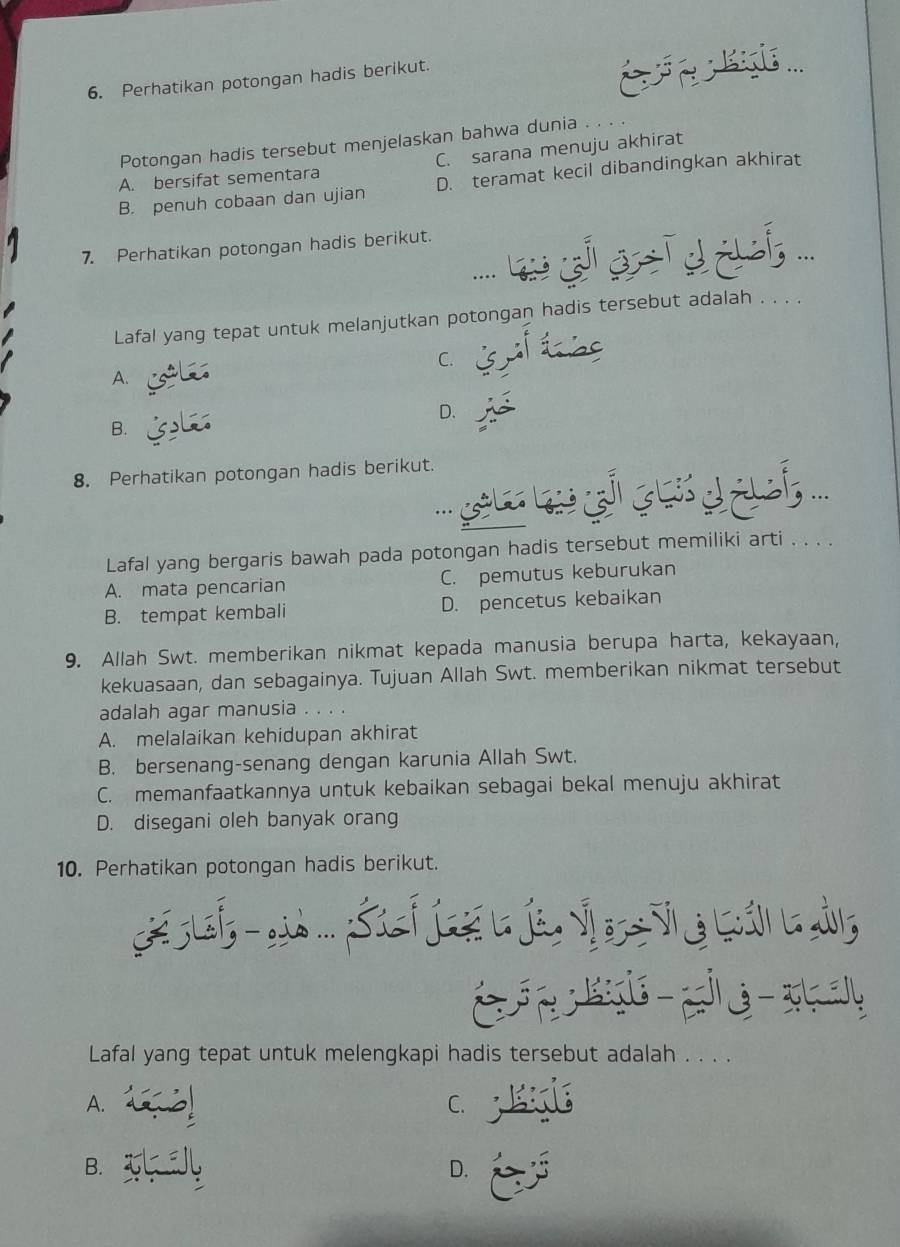 6. Perhatikan potongan hadis berikut.
... فَلْيَنْظُرْ بِمَ تَرْجِعُ
Potongan hadis tersebut menjelaskan bahwa dunia . . . .
A. bersifat sementara
C. sarana menuju akhirat
B. penuh cobaan dan ujian
D. teramat kecil dibandingkan akhirat
7. Perhatikan potongan hadis berikut.
... وَأَصْلِحْ لِي آخِرَتِي الَّتِي فِيْهَا ....
Lafal yang tepat untuk melanjutkan potongan hadis tersebut adalah . . . .
A. مَعَاشِيْ
C. عِصْمَةُ أَمْرِيْ
B. مَعَادِيْ
D. خَيْرِ
8. Perhatikan potongan hadis berikut.
... وَأَصْلِحْ لِي دُنْيَايَ الَّتِيْ فِيْهَا مَعَاشِيْ ...
Lafal yang bergaris bawah pada potongan hadis tersebut memiliki arti . . . .
A. mata pencarian
C. pemutus keburukan
B. tempat kembali
D. pencetus kebaikan
9. Allah Swt. memberikan nikmat kepada manusia berupa harta, kekayaan,
kekuasaan, dan sebagainya. Tujuan Allah Swt. memberikan nikmat tersebut
adalah agar manusia . . . .
A. melalaikan kehidupan akhirat
B. bersenang-senang dengan karunia Allah Swt.
C. memanfaatkannya untuk kebaikan sebagai bekal menuju akhirat
D. disegani oleh banyak orang
10. Perhatikan potongan hadis berikut.
وَاللهِ مَا الدُّنْيَا فِي الْآخِرَةِ إِلَّا مِثْلُ مَا يَجْعَلُ أَحَدُكُمْ ... هَذِهِ - وَأَشَارَ يَحْيَ
بِالسَّبَّابَةِ - فِي الْيَمِّ - فَلْيَنْظُرْ بِمَ تَرْجِعُ
Lafal yang tepat untuk melengkapi hadis tersebut adalah . . . .
A. إِصْبَعَهُ
C. فَلْيَنْظُرْ
B. بِالسَّبَّابَةِ
D. تَرْجِعُ